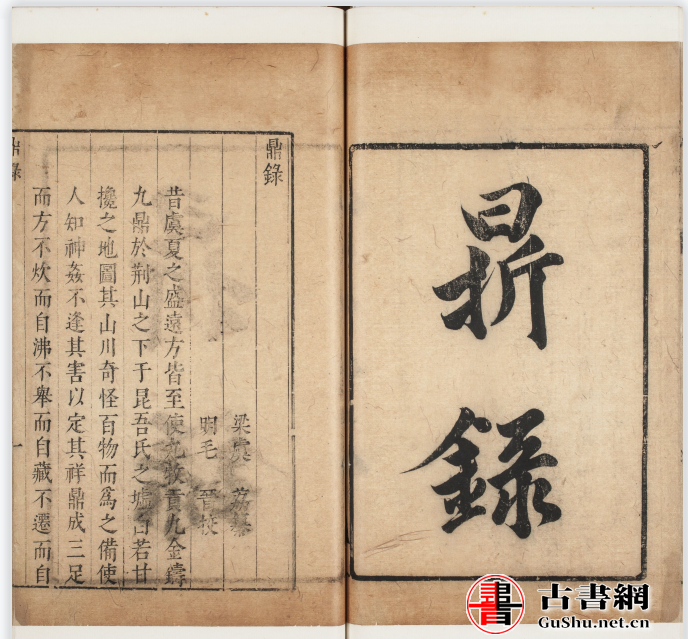 鼎錄
鼎錄
梁虞 荔纂
明毛 晉校
昔虞夏之盛遠方皆至使九牧貢九金鑄
九鼎於荆山之下于昆吾氏之墟白若甘
攙之地圖其山川奇怪百物而爲之備使
人知神姦不逢其害以定其祥鼎成三足
而方不炊而自沸不舉而自藏不遷而自
鼎錄 一
書 古書網
GuShu.net.cn